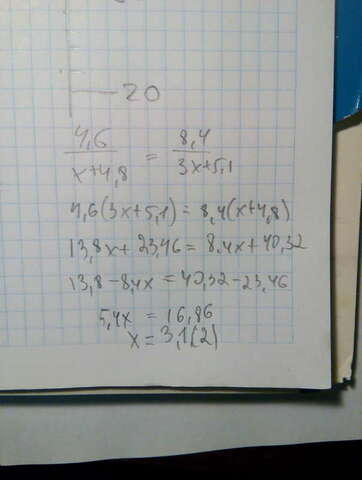 20
4,6/(x+4,8) = 8,4/(3x+5,1)
4,6(3x+5,1)=8,4(x+4,8)
13,8x+23,46=8,4x+40,32
13,8-8,4x=40,32-23,46
5,4x = 16,86
x=3,1(2)